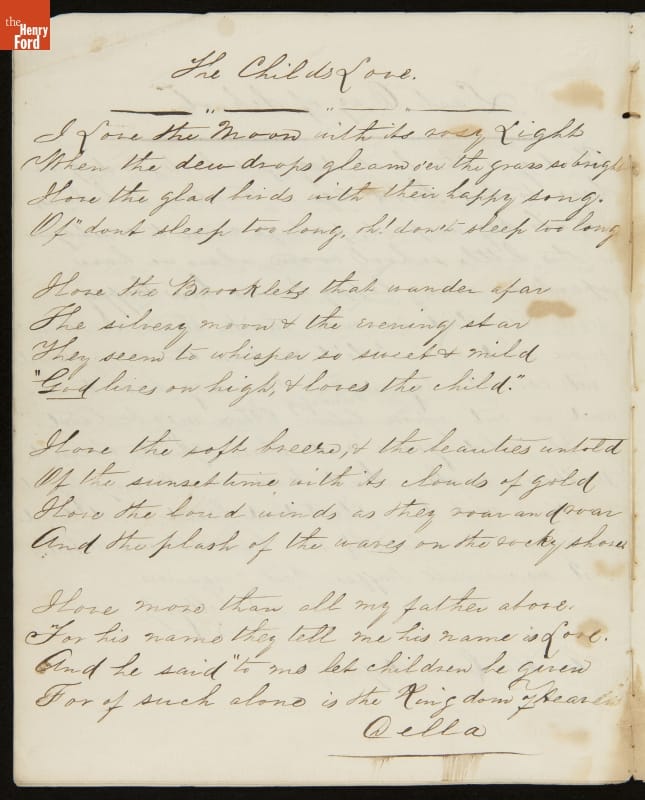 the
Henry
Ford
The Childs Love.
I Love the Moon with its rosy Light
When the dew drops gleam o'er the grass so bright
I love the glad birds with their happy song.
Of "dont sleep too long, oh! don't sleep too long
I love the Brooklets that wander afar
The silvery moon & the evening star
They seem to whisper so sweet & mild
"God lives on high, & loves the child."
I love the soft breeze, & the beauties untold
Of the sunset time with its clouds of gold
I love the loud winds as they roar and roar
And the plash of the waves on the rocky shores
I love more than all my father above.
For his name they tell me his name is Love.
And he said "to me let children be given
For of such alone is the Kingdom of Heaven
Cella